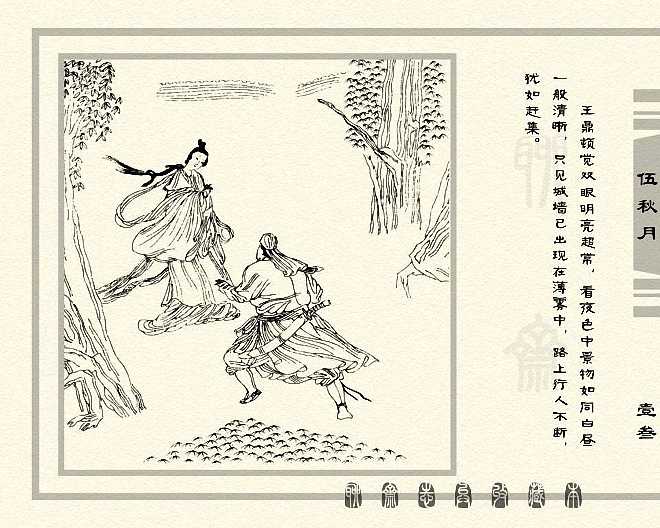 王鼎顿觉双眼明亮超常，看夜色中景物如同白昼
一般清晰，只见城墙已出现在薄雾中，路上行人不断，
犹如赶集。
伍秋月
壹叁
聊斋志异收藏本